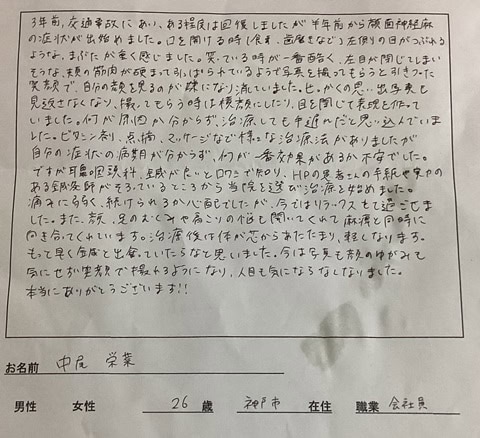 3年前、交通事故にあい、ある程度は回復しましたが半年前から顔面神経麻
の症状が出始めました。口を開ける時(食事、歯磨きなど)左側の目がつぶれる
ような、まぶたが重く感じました。笑ている時が一番酷く、左目が閉じてしまい
そうな、頬の筋肉が硬まって引っぱられているようで写真を撮ってもらうと引きつった
笑顔で、自分の顔を見るのが嫌になり流していました。せっかくの思い出写真も
見返さなくなり、撮ってもらう時は横顔にしたり、目を閉じて表現を作って
いました。何が原因か分からず、治療しても手遅れだと思い込んでいま
した。ビタミン剤、点滴、マッサージなど様々な治療法がありましたが
自分の症状の病期が分からず、何が一番効果があるか不安でした。
ですが耳鼻咽喉科、鍼が良いと口コミで知り、HPの患者さんの手紙や実力の
ある鍼灸師がそろっているところから当院を選び治療を始めました。
痛みに弱く、続けられるか心配でしたが、今ではリラックスもして過ごせま
した。また、顔、足のむくみや肩こりの悩も聞いてくれて麻痺と同時に
向き合てくれています。治療後は体が芯からあたたまり、軽くなります。
もって早く鍼灸と出会っていたらなと思いました。今は写真も顔のゆがみも
気にせず笑顔で撮れるようになり、人目も気にならなくなりました。
本当にありがとうございます!!
お名前 中尾 栄菜
男性 女性 26 歳 神戸市 在住 職業 会社員